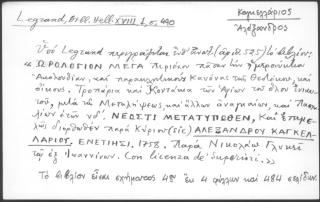 Legrand, Bibl. Hell. XVIII, 1, σ. 490
Καγκελλάριος
Ἀλέξανδρος
Ὑπὸ Legrand περιγράφεται ὑπ' ἀριθ. 525) τὸ βιβλίον:
« ΩΡΟΛΟΓΙΟΝ ΜΕΓΑ Περιέχον πᾶσαν τὴν ἡμερονύκτιον
Ἀκολουθίαν, καὶ παρακλητικοὺς Κανόνας τῆς Θεοτόκου, καὶ
οἴκους. Τροπάρια καὶ Κοντάκια τῶν Ἁγίων τοῦ ὅλου ἐνιαυ-
τοῦ, μετὰ τῆς Μεταλήψεως, καὶ ἄλλων ἀναγκαίων, καὶ Πασχα-
λίων ἐτῶν νδ'. ΝΕΩΣΤΙ ΜΕΤΑΤΥΠΩΘΕΝ, Καὶ ἐπιμε-
λῶς διορθωθὲν παρὰ Κυρίου (sic) ΑΛΕΞΑΝΔΡΟΥ ΚΑΓΚΕΛ-
ΛΑΡΙΟΥ. ΕΝΕΤΙΗΣΙ, 1758. Παρὰ Νικολάῳ Γλυκεῖ
τῷ ἐξ Ἰωαννίνων. Con licenza de' Superiori. »
Τὸ βιβλίον εἶναι σχήματος 4ου ἐκ 4 φύλλων καὶ 484 σελίδων